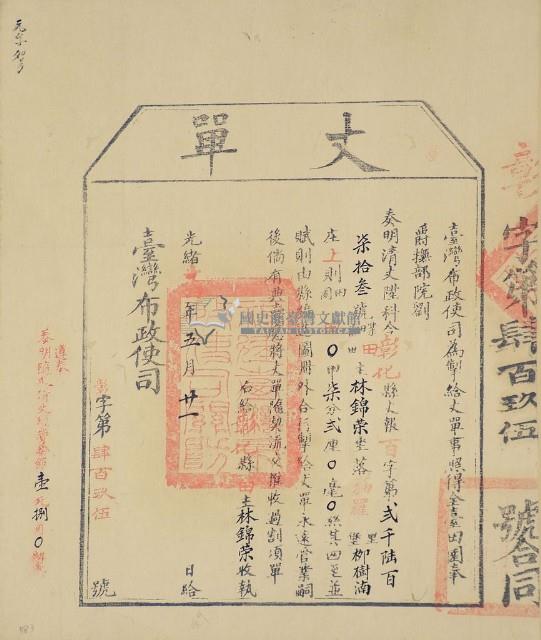 丈單
字第肆百玖伍 號合同
臺灣布政使司為掣給丈單事照得全臺田園奉
爵撫部院劉
奏明清丈陞科今彰化縣丈報百字第貳千陸百
柒拾叁號 田主林錦榮坐落 柳樹湳
庄上則田 〇甲柒分貳厘〇毫〇絲 四至並
賦則由縣 圖冊外合行掣給丈單永遠管業嗣
後倘有典賣應將丈單隨契流交推收過割須單
右給 縣 主林錦榮收執
光緒 年五月廿一 日給
臺灣布政使司
彰字第肆百玖伍 號
國史館臺灣文獻館
TAIWAN HISTORICA